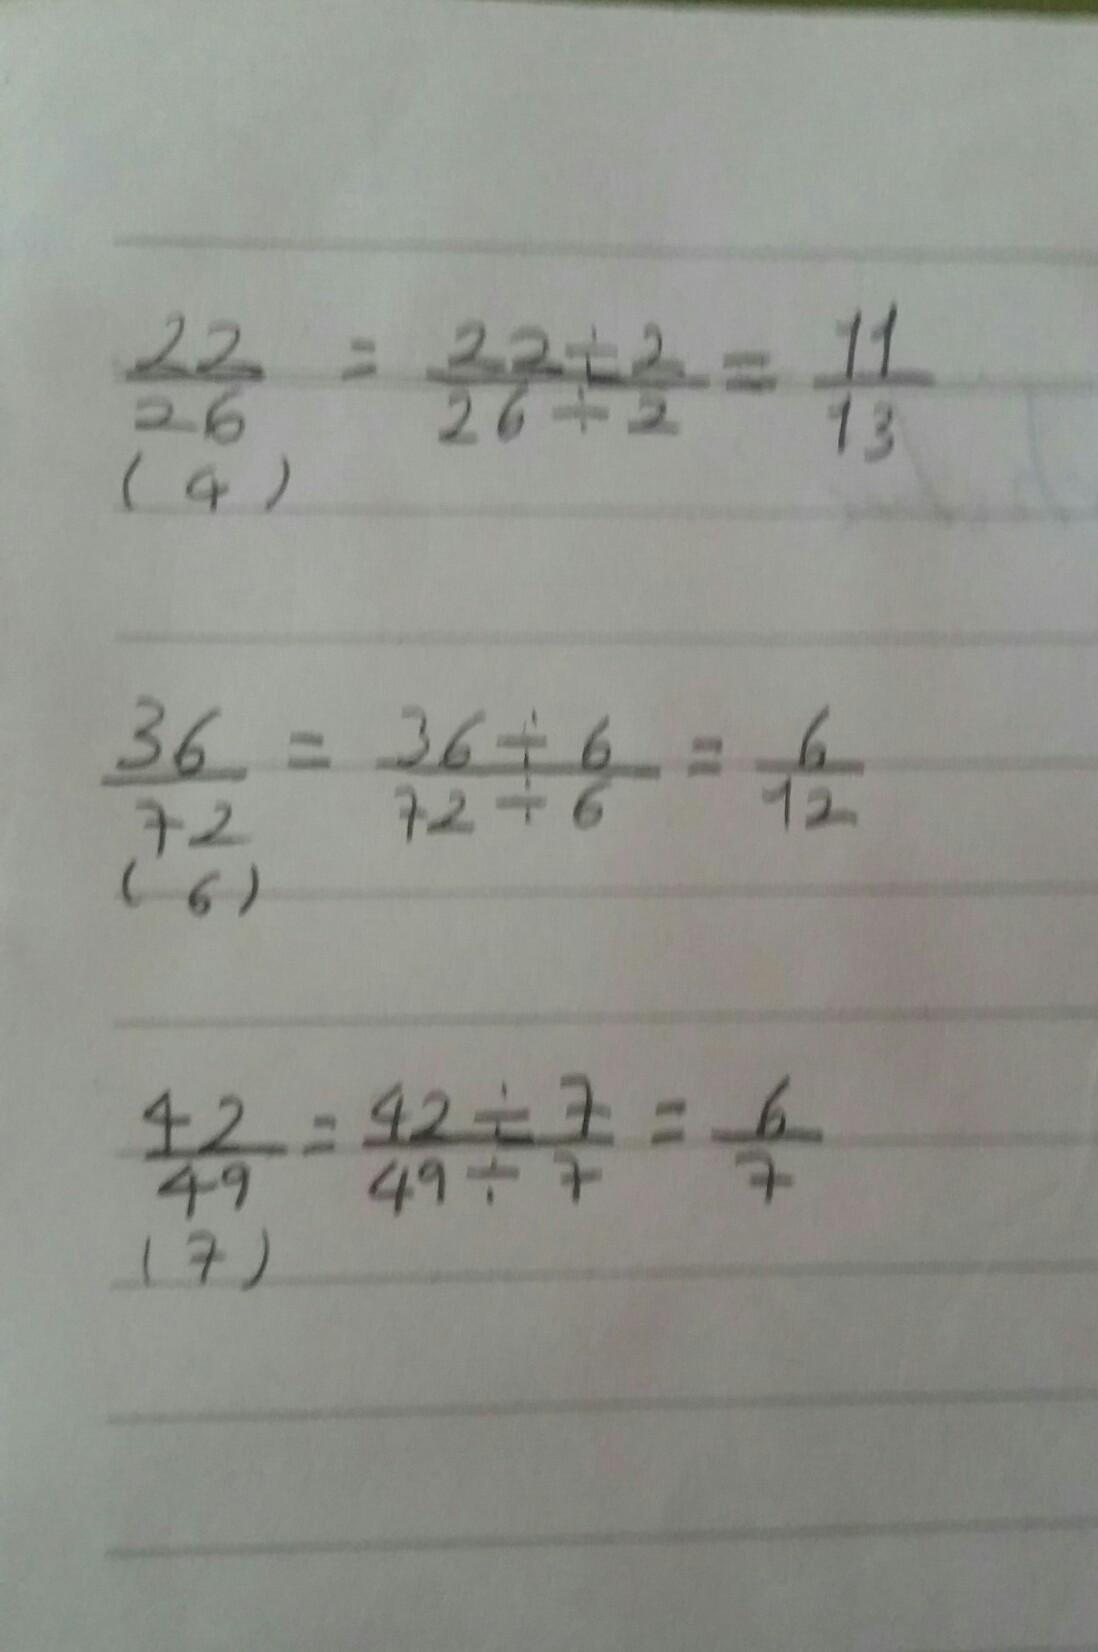 22/26 = 22÷2/26÷2 = 11/13
(4)
36/72 = 36÷6/72÷6 = 6/12
(6)
42/49 = 42÷7/49÷7 = 6/7
(7)